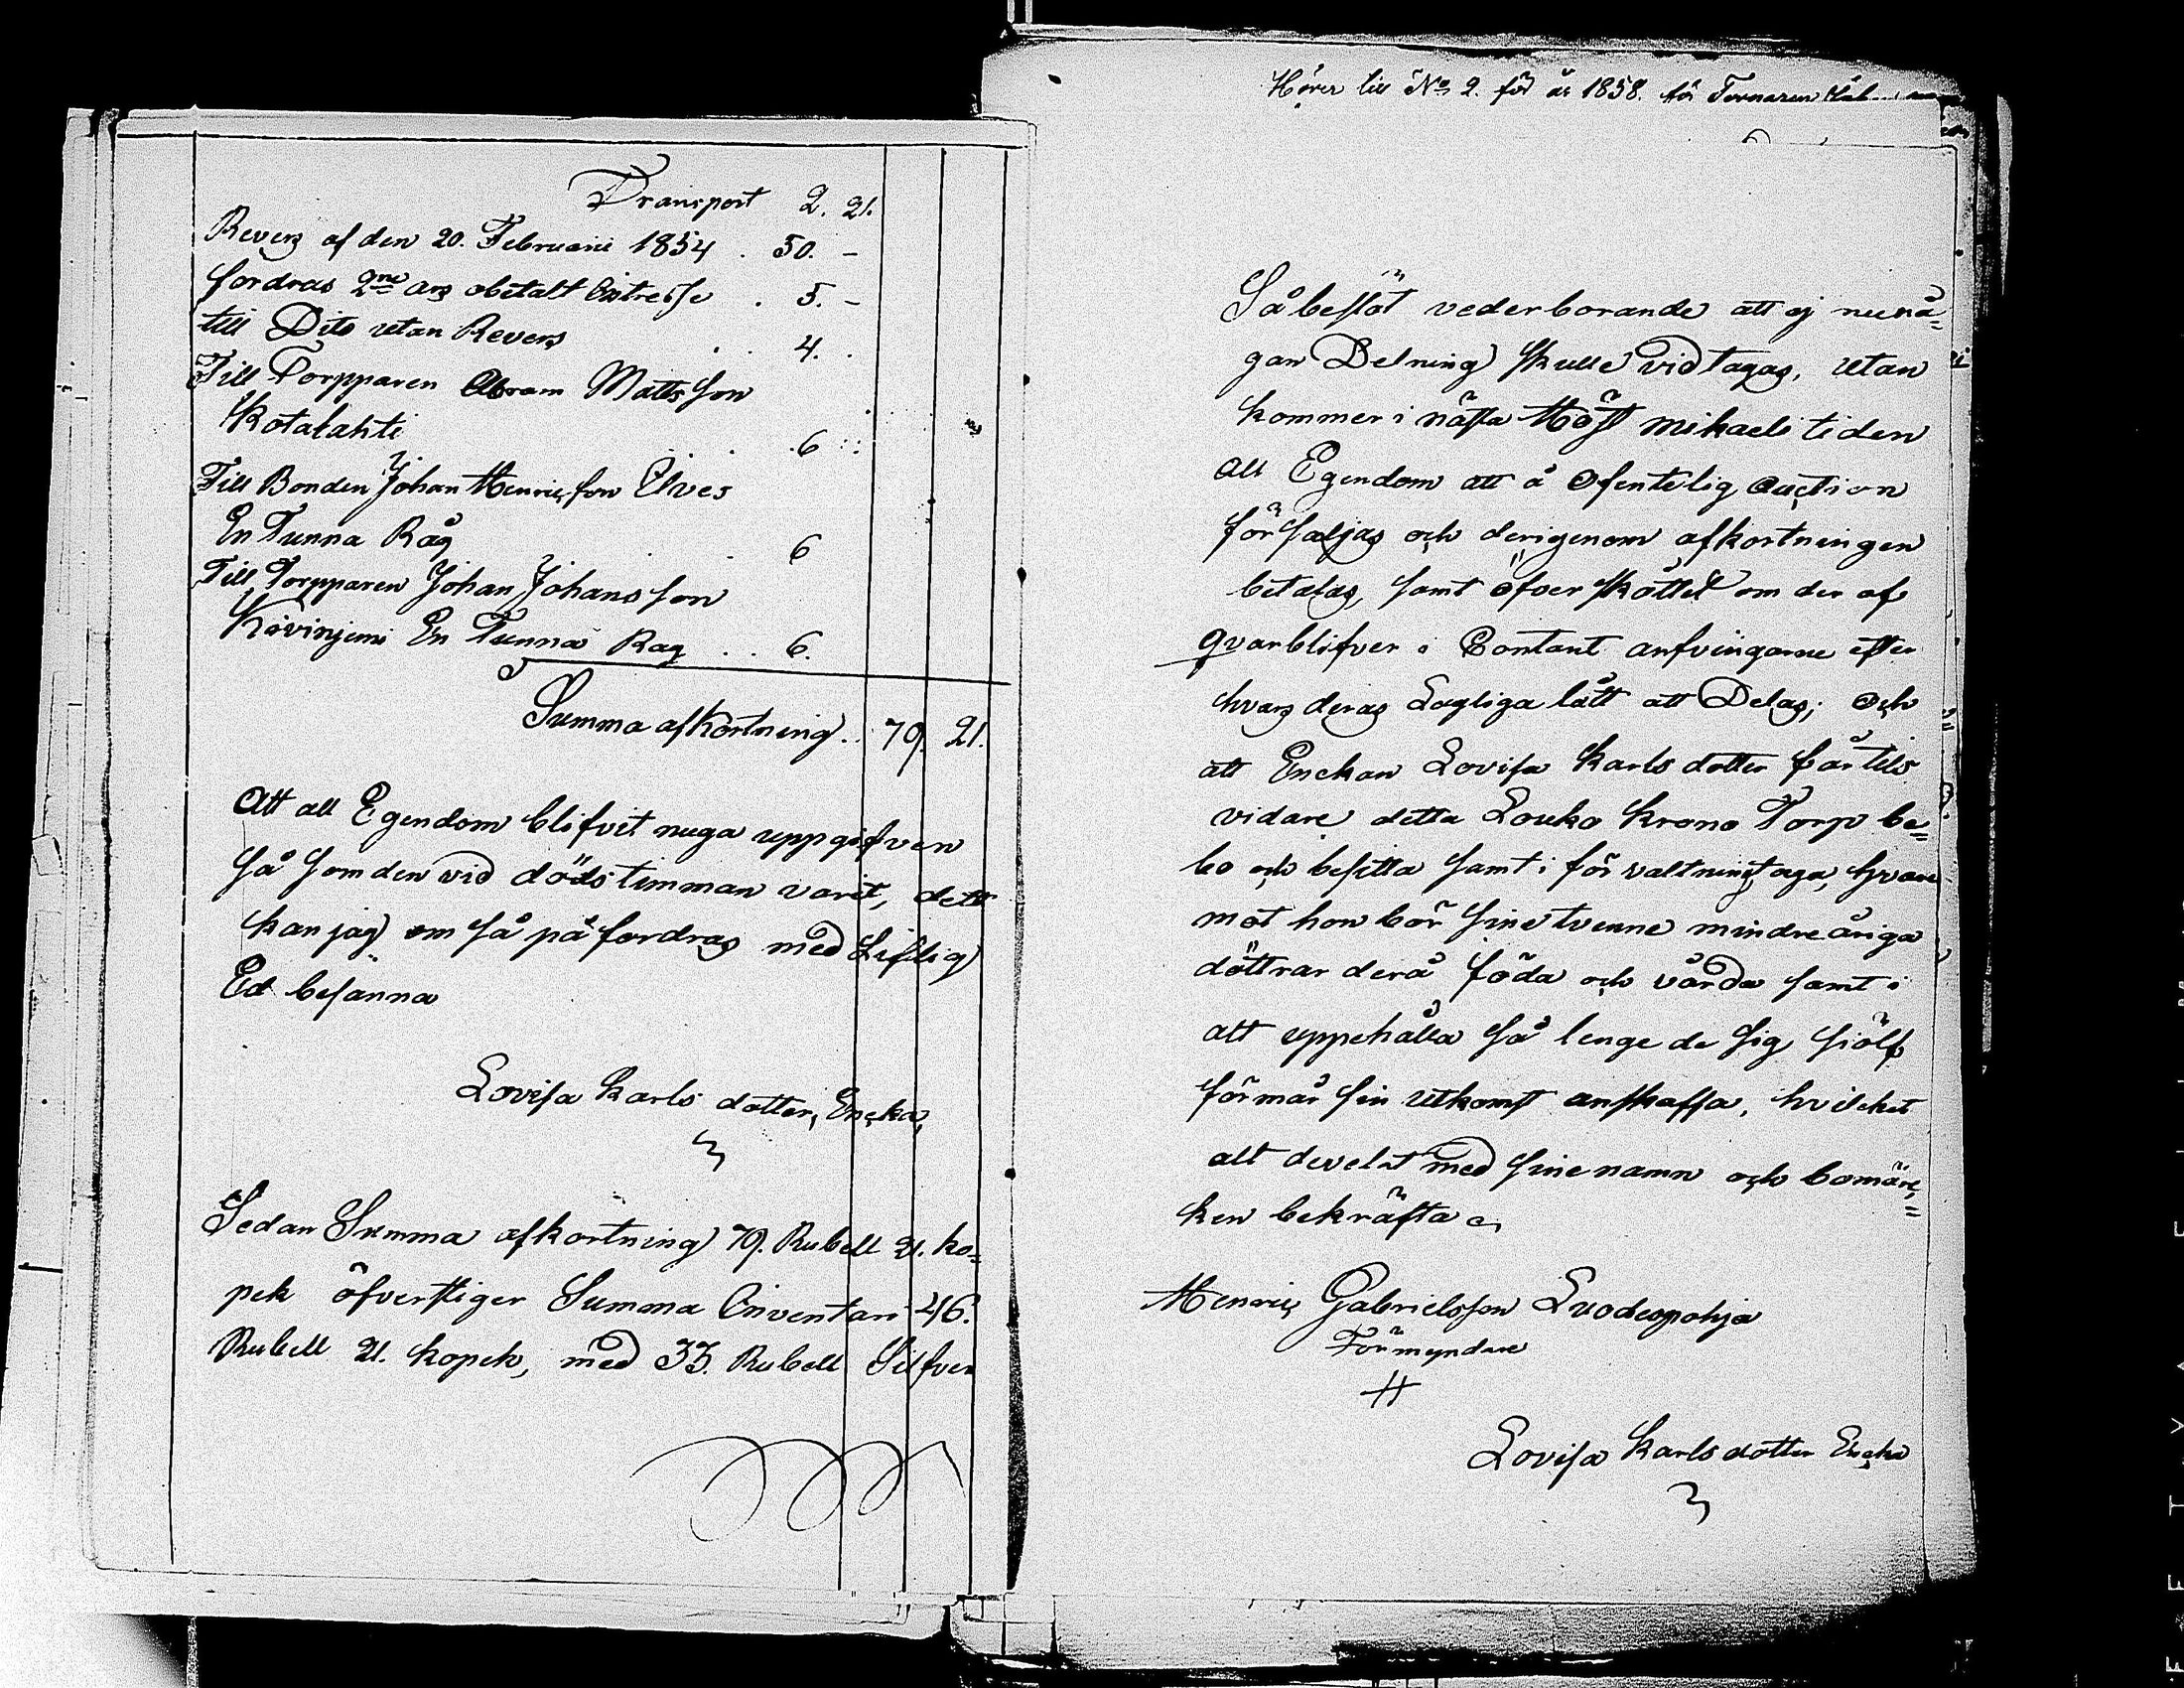 Transport 2. 21.
Revers af den 20. Februarii 1854 . 50. -
fordras 2ne års obetalt Intresse . 5. -
till Dito utan Revers . . 4. .
Till Torpparen Abram Matts son
Kotalahti . . . 6 . .
Till Bonden Johan Henricsson Elves
En Tunna Råg . 6
Till Torpparen Johan Johansson
En Tunna Rag . . 6.
Summa afkortning . . 79. 21.
Att all Egendom blifvit nuga uppgifven
så som den vid dödstimman varit, dett
kan jag om så på fordras med Liflig
Ed besanna
Lovisa Karls dotter, Encka,
Sedan Summa afkortning 79. Rubell 21. ko=
pek öfverstiger Summa Inventari 46.
Rubell 21. kopek, med 33. Rubell Silfver
Hörer till No 2. för år 1858.
Så beslöt vederborande att ej nu nå=
gan Delning skulle vidtagas, utan
kommer i nästa Höst mikaeli tiden
all Egendom att å Ofentelig Auction
försäljas och derigenom afkortningen
betalas, samt öfver skottet om der af
qvarblifver i Contant arfvingarne efter
hvars deras Lagliga lått att Delas; Och
att Enckan Lovisa Karls dotter får tils
vidare detta Louko Krono Torp be=
bo och besitta samt i förvaltning aga, hvare
mot hon bör sine tvenne mindreåriga
döttrar derå föda och vårda samt i
att uppehålla så lenge de sig siölf
förmår sin utkomst anskaffa, hvilcket
alt develat med sine namn och bomärc=
ken bekräfta
Henric Gabrielsson Luodespohja
Förmyndare
Lovisa Karls dotter Encka